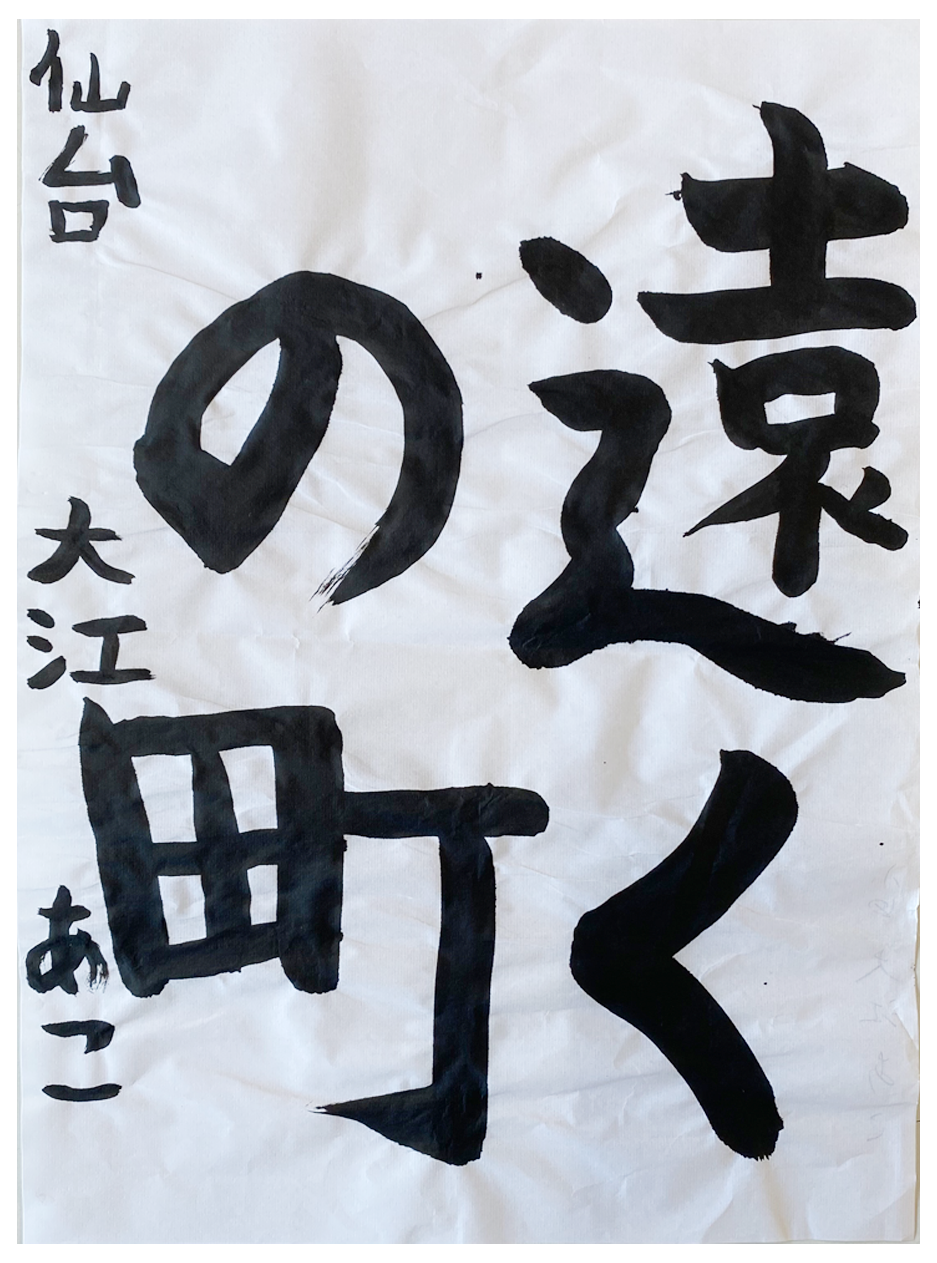 遠く
の町
仙台 大江 あこ